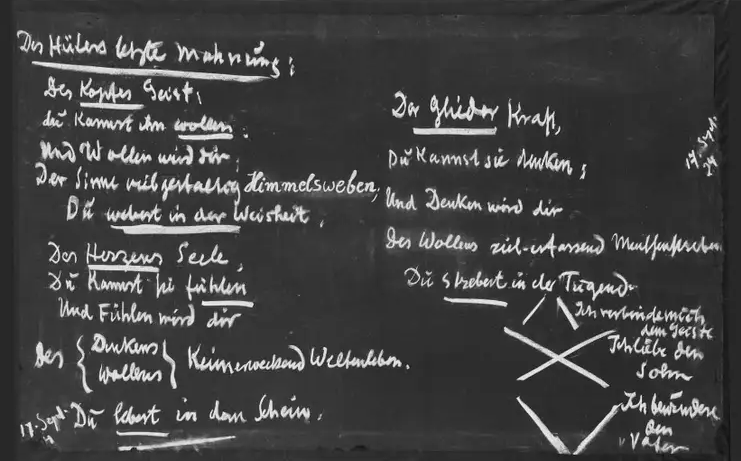 Des Hüters letzte Mahnung:
Des Kopfes Geist,
du kannst ihn wollen;
Und Wollen wird dir
Der Sinne vielgestaltig Himmelsweben;
Du webest in der Weisheit.
Des Herzens Seele,
Du kannst sie fühlen
Und Fühlen wird dir
Des { Denkens
wollens } Keimerweckend Weltenleben.
Du lebest in dem Schein.
17. Sept.
Der Glieder Kraft,
Du kannst sie denken;
Und Denken wird dir
Des Wollens ziel-erfassend Menschenstreben
Du strebest in der Tugend.
Ich verbinde mich
dem Geiste
Ich liebe den
Sohn
Ich bewundere
den
Vater
17. Sept.
24